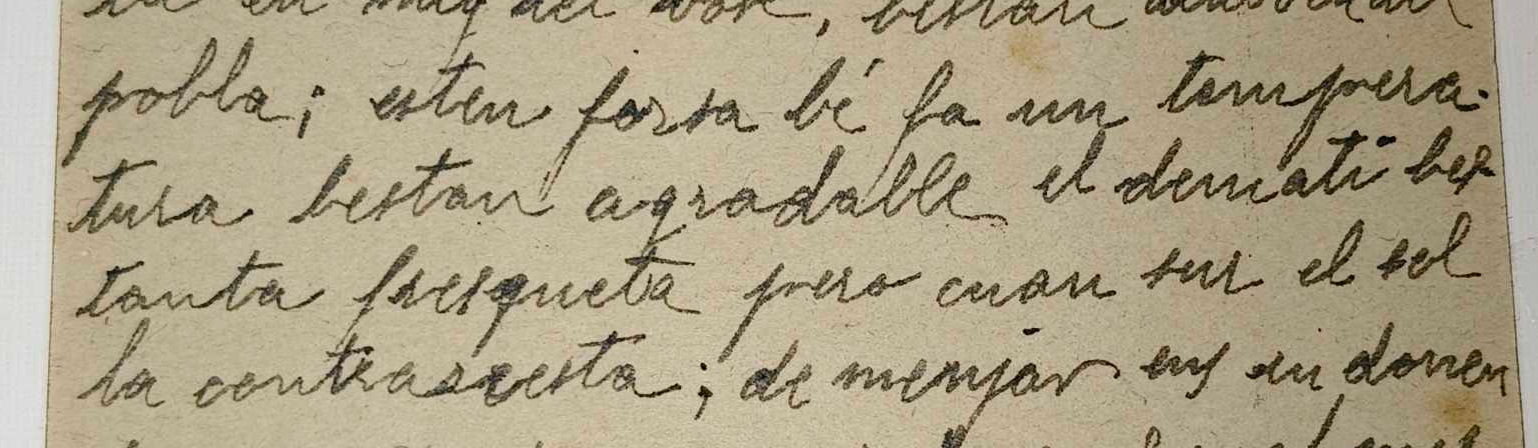 pobla; esten forsa bé fa un tempera-
tura bestan agradalle el demati bes-
tanta fresqueta pero cuan sur el sol
la contrasresta; de menjar ens en donen